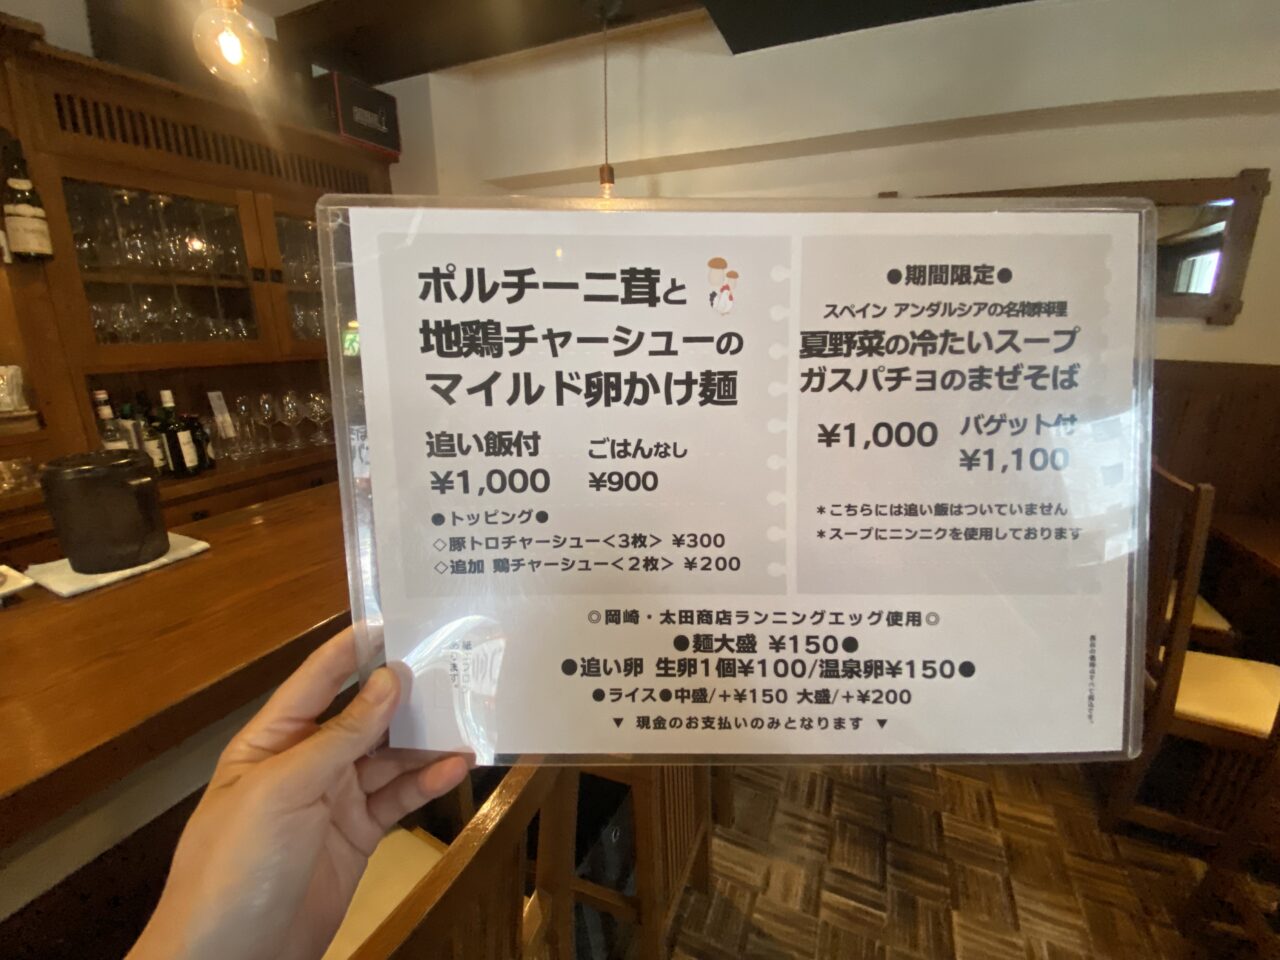 ポルチーニ茸と
地鶏チャーシューの
マイルド卵かけ麺
追い飯付
¥1,000
ごはんなし
¥900
●トッピング●
◇豚トロチャーシュー＜3枚＞ ¥300
◇追加 鶏チャーシュー＜2枚＞ ¥200
●期間限定●
スペイン アンダルシアの名物料理
夏野菜の冷たいスープ
ガスパチョのまぜそば
¥1,000
バゲット付
¥1,100
＊こちらには追い飯はついていません
＊スープにニンニクを使用しております
◎岡崎・太田商店ランニングエッグ使用◎
●麺大盛 ¥150●
●追い卵 生卵1個¥100/温泉卵¥150●
●ライス●中盛/+¥150 大盛/+¥200
▼ 現金のお支払いのみとなります ▼